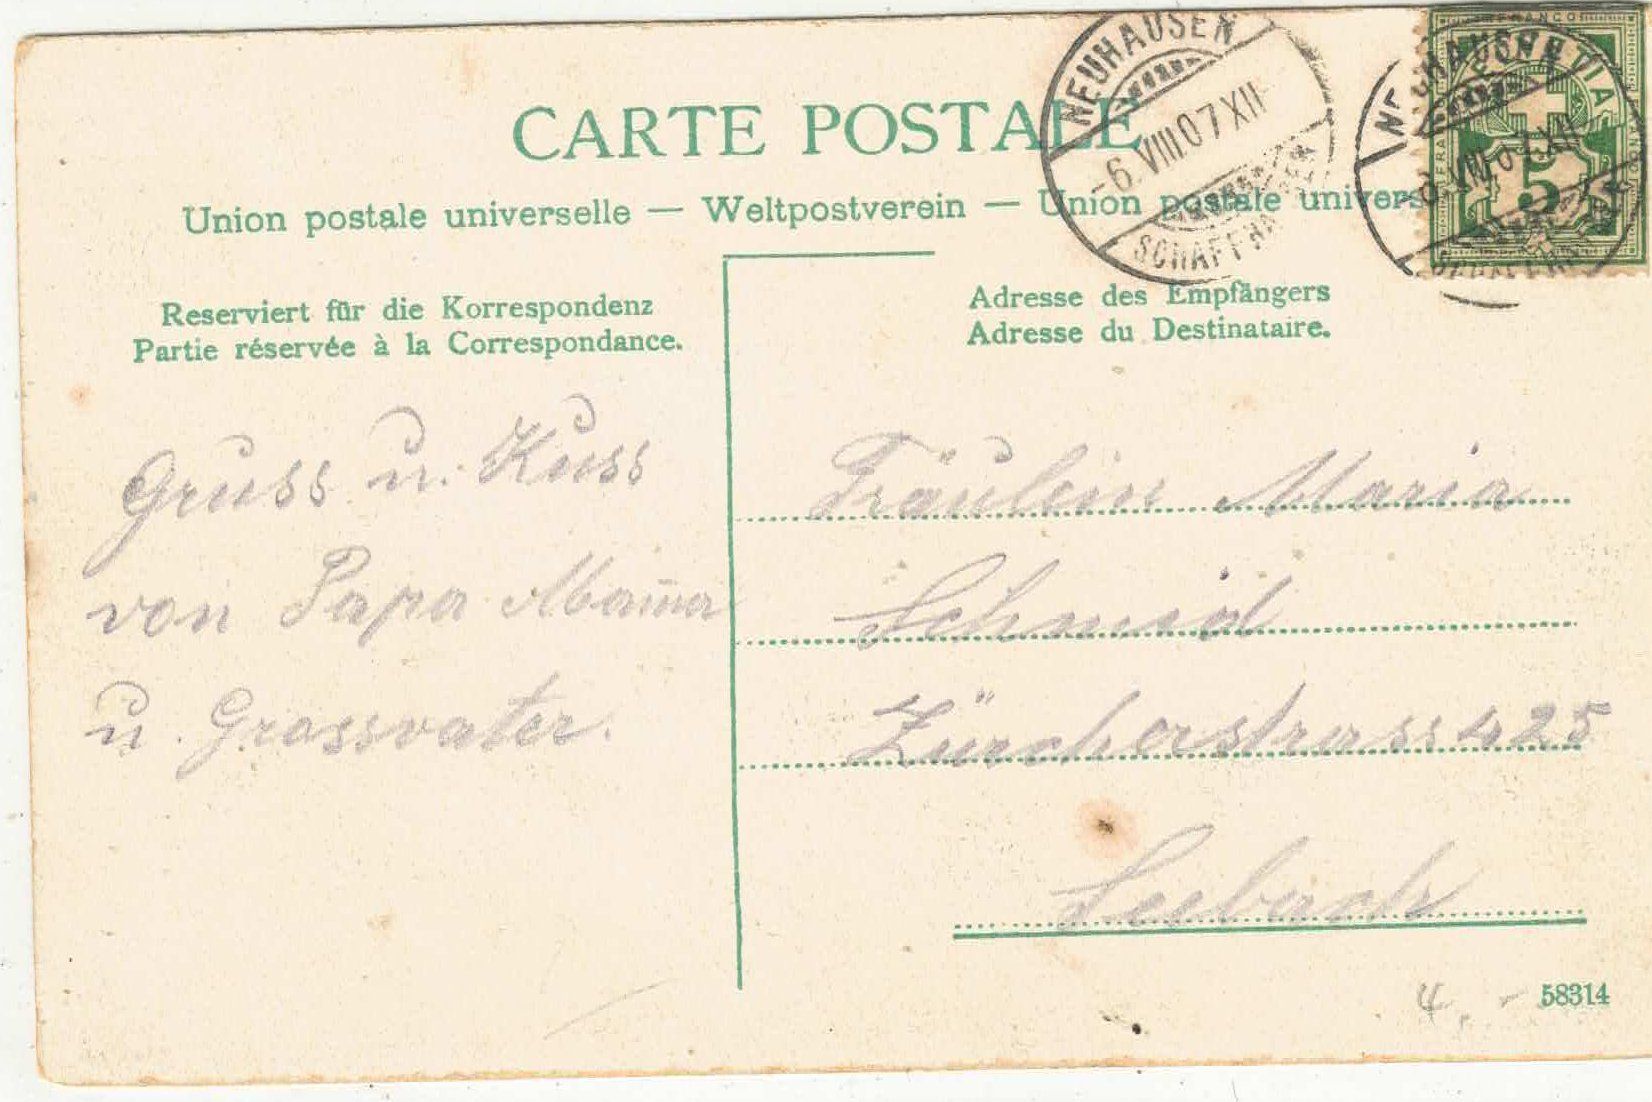 CARTE POSTALE
Union postale universelle — Weltpostverein — Union postale univers
NEUHAUSEN
-6.VIII.07 XII-
SCHAFFHA
HAUSEN
VIII.07 XII
FRANCO
5
Reserviert für die Korrespondenz
Partie réservée à la Correspondance.
Adresse des Empfängers
Adresse du Destinataire.
Gruss u. Kuss
von Papa Mam̄a
u. Grossvater.
Fräulein Maria
Schmid
Zürcherstrass 425
Seebach
4.-
58314